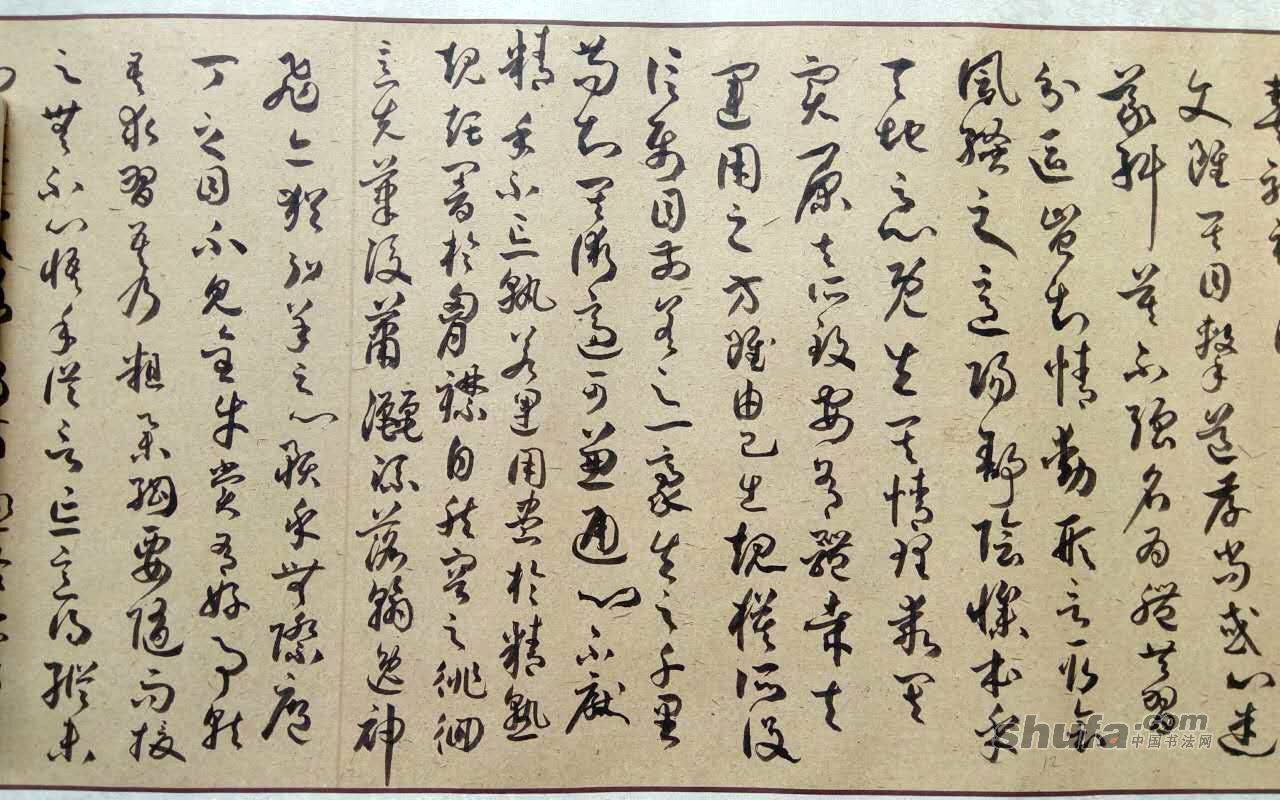 文雖其目擊道存尚或心迷
義舛莫不強名為體共習
分區豈知情動形言取會
風騷之意陽舒陰慘本乎
天地之心既失其情理乖其
實原夫所致安有體哉夫
運用之方雖由己出規模所設
信屬目前差之一豪失之千里
苟知其術適可兼通心不厭
精手不忘熟若運用盡於精熟
規矩闇於胸襟自然容之徘徊
意先筆後瀟灑流落翰逸神
飛亦猶弘羊之心預乎無際庖
丁之目不見全牛嘗有好事就
吾求習吾乃粗舉綱要隨而授
之無不心悟手從言忘意得縱未
shufa.com
中国书法网
12